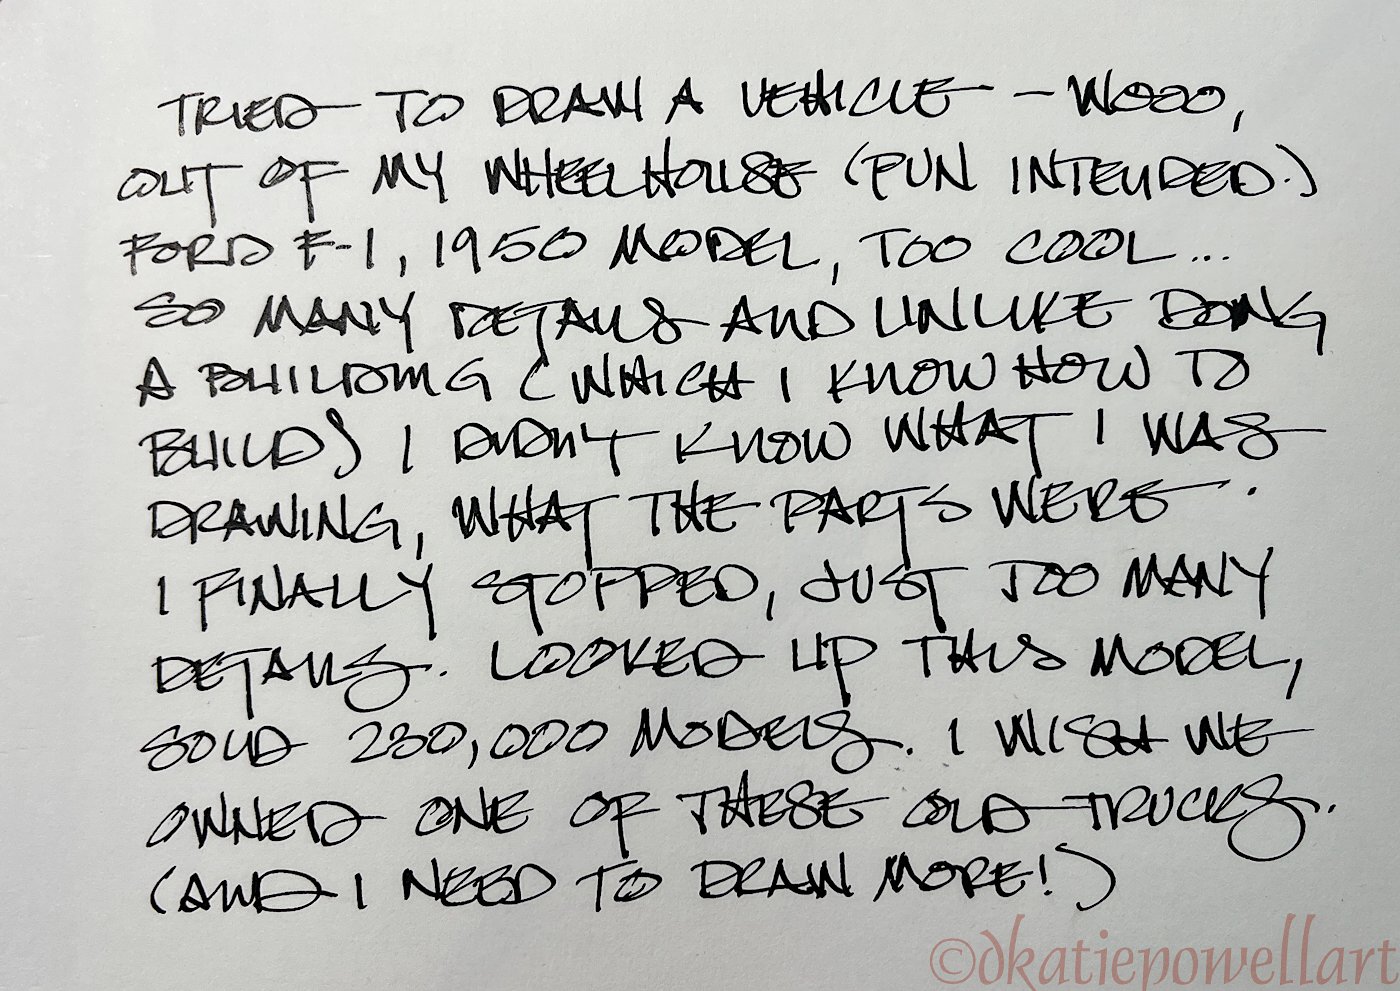 TRIED TO DRAW A VEHICLE - WOOO,
OUT OF MY WHEELHOUSE (PUN INTENDED.)
FORD F-1, 1950 MODEL, TOO COOL...
SO MANY DETAILS AND UNLIKE DOING
A BUILDING (WHICH I KNOW HOW TO
BUILD) I DIDN'T KNOW WHAT I WAS
DRAWING, WHAT THE PARTS WERE.
I FINALLY STOPPED, JUST TOO MANY
DETAILS. LOOKED UP THIS MODEL,
SOLD 230,000 MODELS. I WISH WE
OWNED ONE OF THESE OLD TRUCKS..
(AND I NEED TO DRAW MORE!)
©dkatiepowellart